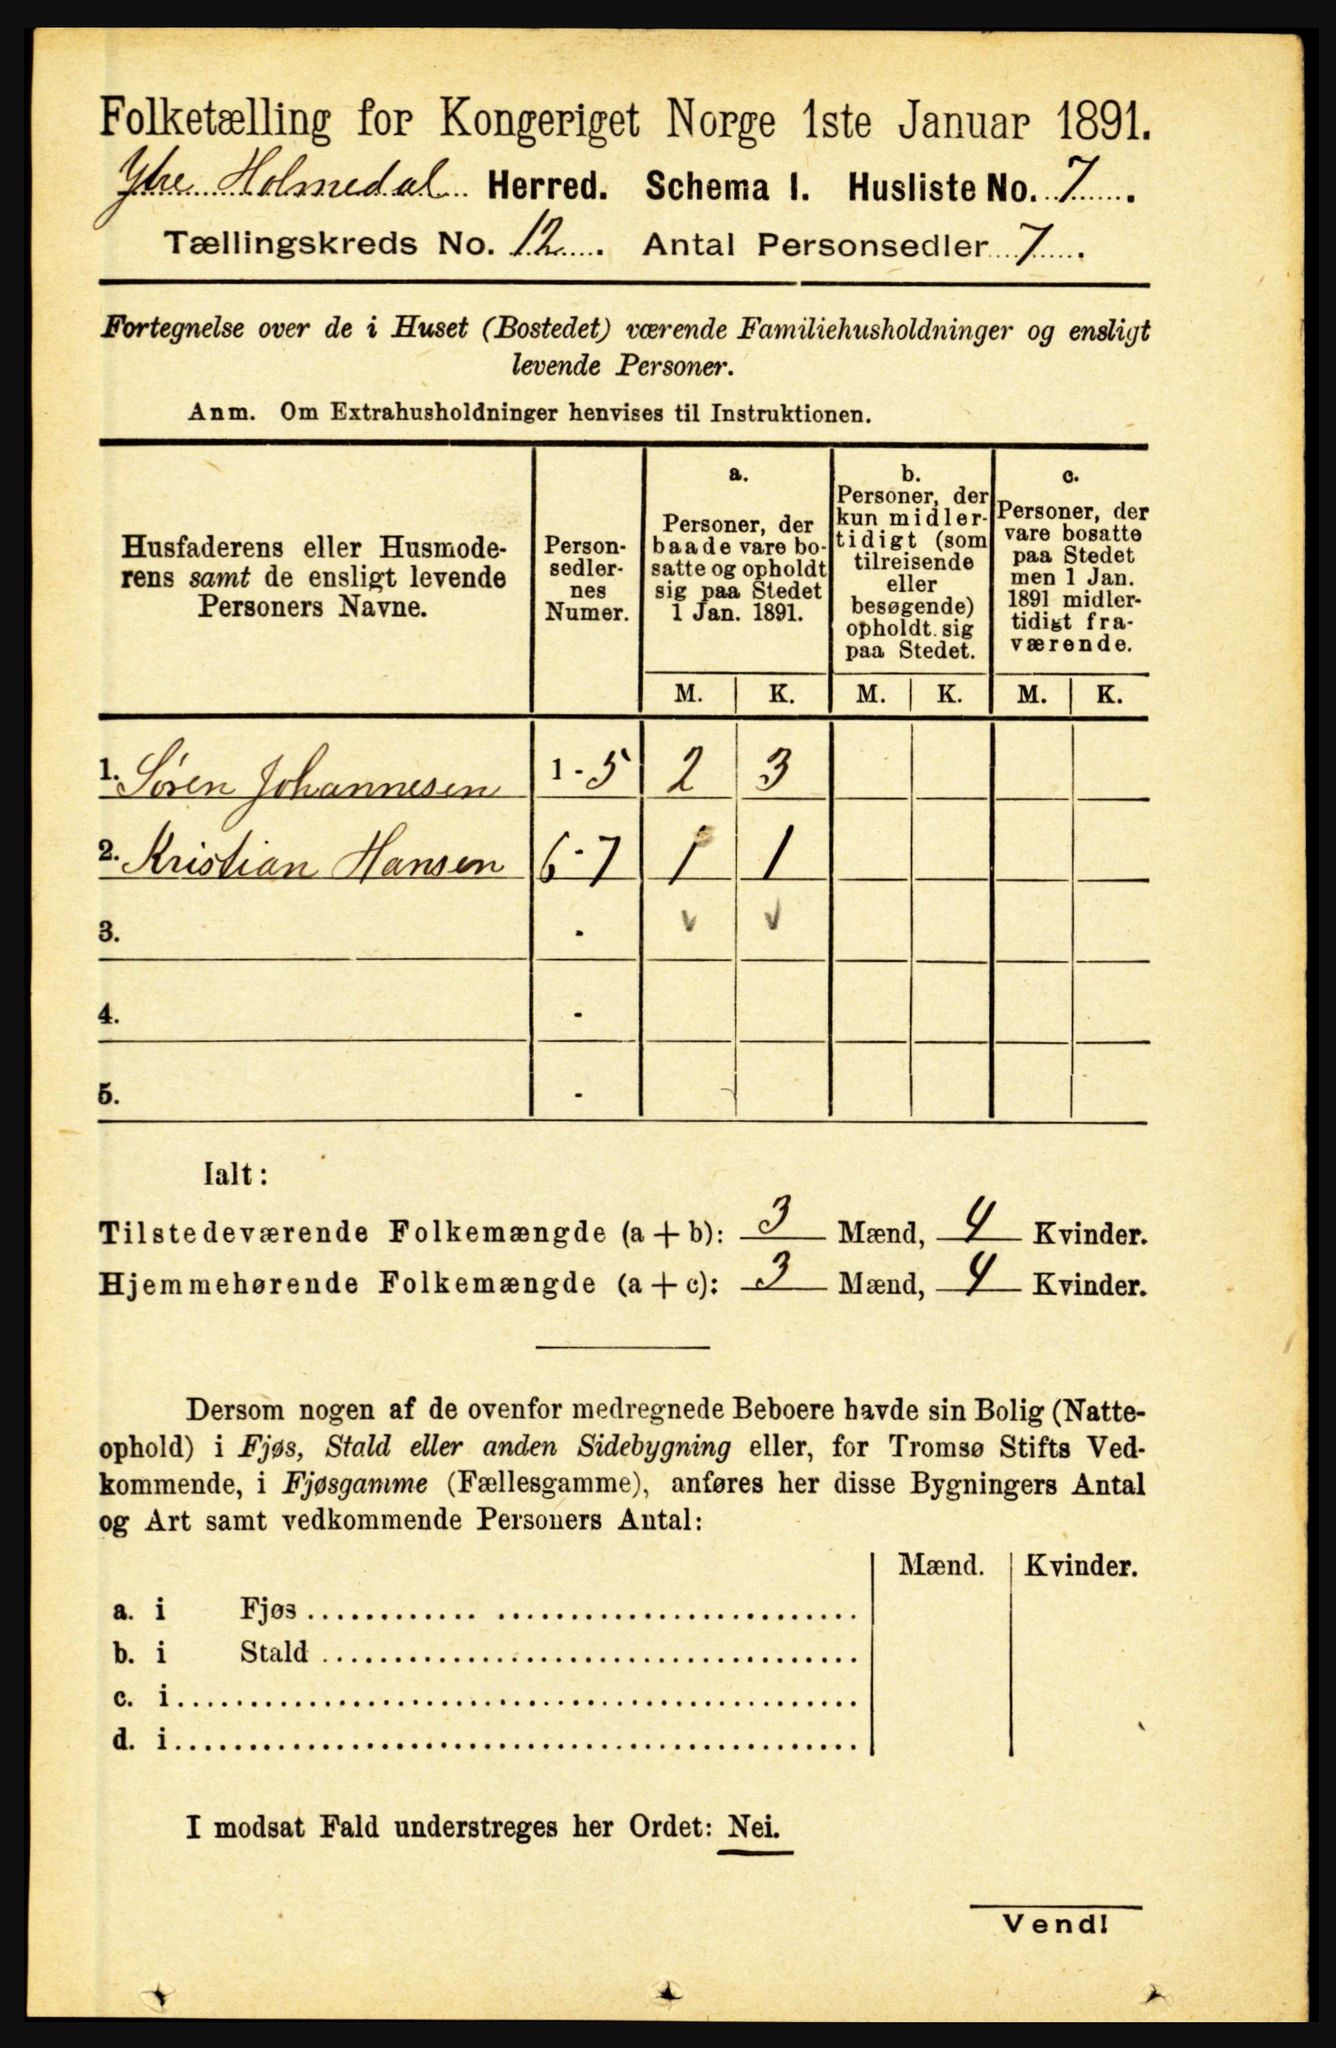 Folketælling for Kongeriget Norge 1ste Januar 1891.
Ytre Holmedal Herred. Schema I. Husliste No. 7.
Tællingskreds No. 12. Antal Personsedler 7.
Fortegnelse over de i Huset (Bostedet) værende Familiehusholdninger og ensligt
levende Personer.
Anm. Om Extrahusholdninger henvises til Instruktionen.
Husfaderens eller Husmode-
rens samt de ensligt levende
Personers Navne.
Person-
sedler-
nes
Numer.
a.
Personer, der
baade vare bo-
satte og opholdt
sig paa Stedet
1 Jan. 1891.
b.
Personer, der
kun midler-
tidigt (som
tilreisende
eller
besøgende)
opholdt sig
paa Stedet.
c.
Personer, der
vare bosatte
paa Stedet
men 1 Jan.
1891 midler-
tidigt fra-
værende.
M. K. M. K. M. K.
1. Søren Johannesen 1 - 5 2 3
2. Kristian Hansen 6 - 7 1 1
3. -
4. -
5. -
Ialt:
Tilstedeværende Folkemængde (a + b): 3 Mænd, 4 Kvinder.
Hjemmehørende Folkemængde (a + c): 3 Mænd, 4 Kvinder.
Dersom nogen af de ovenfor medregnede Beboere havde sin Bolig (Natte-
ophold) i Fjøs, Stald eller anden Sidebygning eller, for Tromsø Stifts Ved-
kommende, i Fjøsgamme (Fællesgamme), anføres her disse Bygningers Antal
og Art samt vedkommende Personers Antal:
Mænd. Kvinder.
a. i Fjøs
b. i Stald
c. i
d. i
I modsat Fald understreges her Ordet: Nei.
Vend!